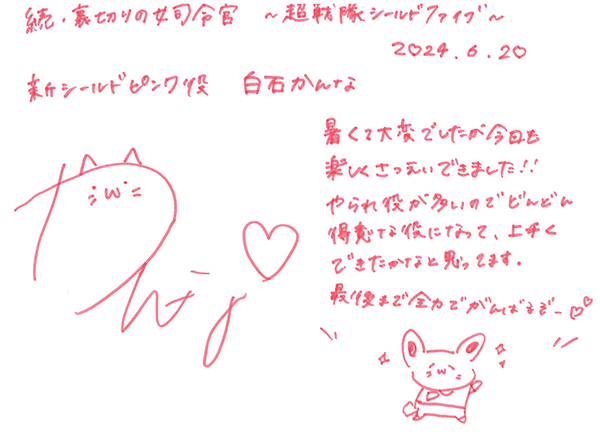 続・裏切りの女司令官 ～超戦隊シールドファイブ～
2024.6.20
新シールドピンク役 白石かんな
暑くて大変でしたが今日も
楽しくさつえいできました!!
やられ役が多いのでどんどん
得意な役になって、上手く
できたかなと思ってます。
最後まで全力でがんばるぞー♡♡
かんな